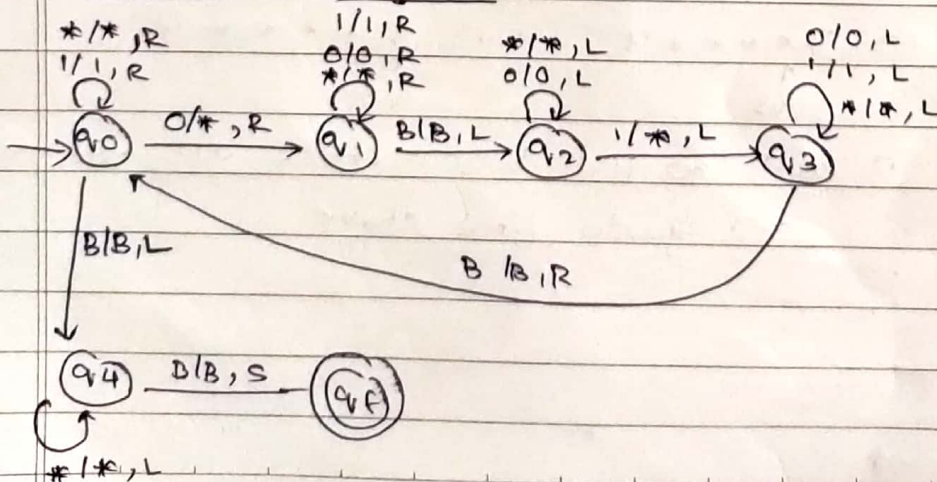 */*, R
1/1, R
1/1, R
0/0, R
*/*, R
*/*, L
0/0, L
0/0, L
1/1, L
*/*, L
q0
0/*, R
q1
B/B, L
q2
1/*, L
q3
B/B, L
B/B, R
q4
B/B, S
qf
*/*, L